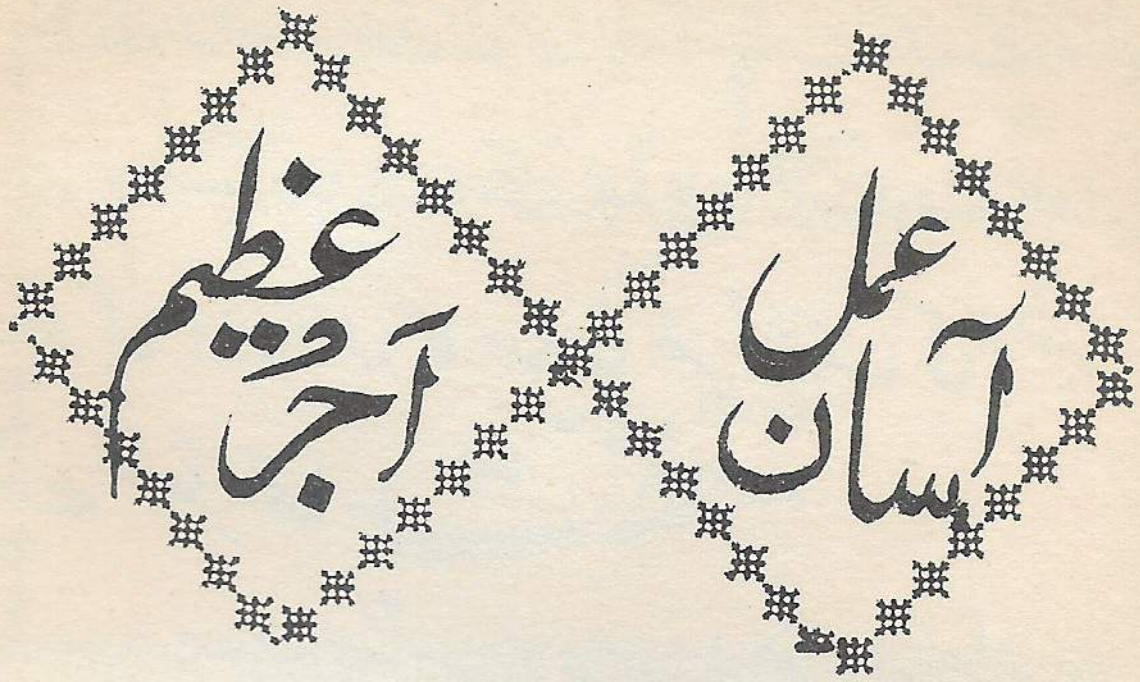 آسان عمل
اَجرٌ عظیم